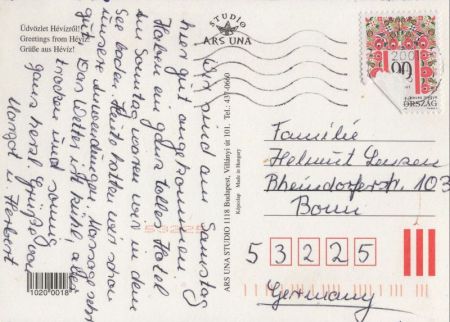 Üdvözlet Hévízről!
Greetings from Hévíz!
Grüße aus Hévíz!
STUDIO
ARS UNA
Wir sind am Samstag
hier gut angekommen.
Haben ein ganz tolles Hotel
Am Sonntag waren wir in dem
See baden. Heute hatten wir schon
unsere Anwendungen. Massage sehr
gut. Das Wetter ist kühl, aber
trocken und sonnig
Ganz herzl. Grüße von
Margot u. Herbert
ARS UNA STUDIO 1118 Budapest, Villányi út 101. Tel.: 457-0660
Made in Hungary
200
90
ORSZÁG
Familie
Helmut Lenzen
Rheindorferstr. 103
Bonn
53225
53225
Germany
10200018